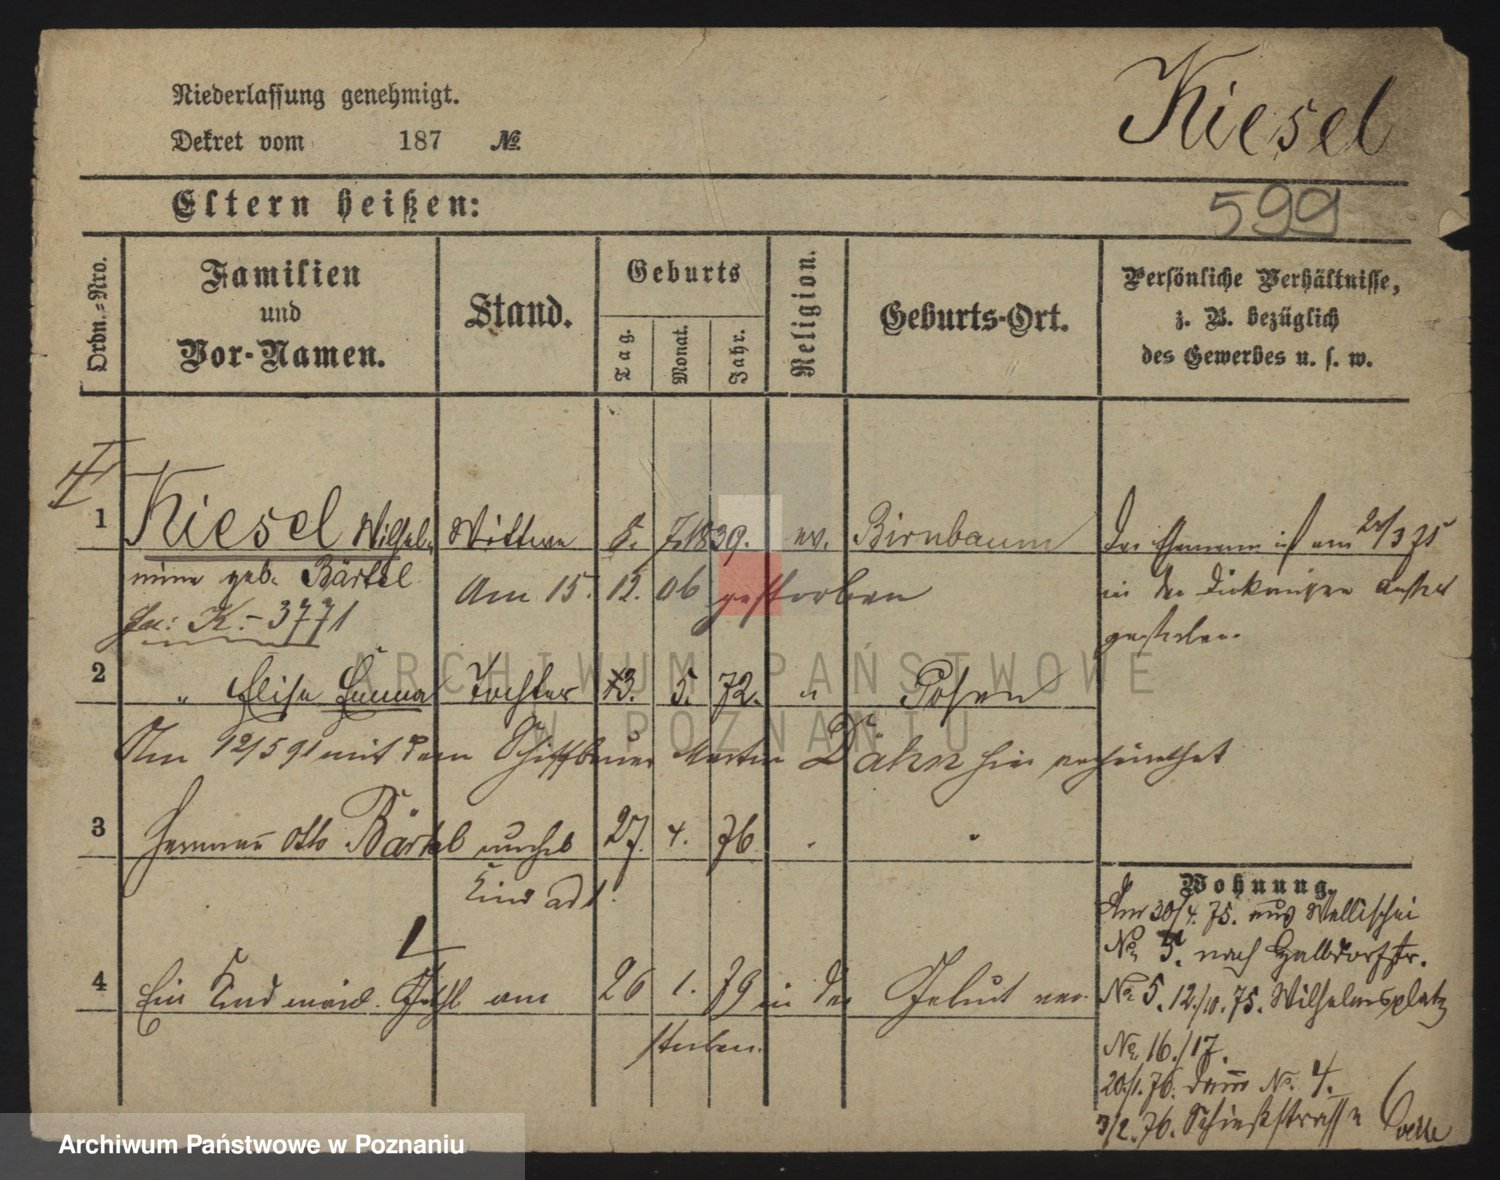 Niederlassung genehmigt.
Kiesel
Dekret vom 187 №
Eltern heißen:
599
Ordn.-Nro.
Familien
und
Vor-Namen.
Stand.
Geburts
Tag.
Monat.
Jahr.
Religion.
Geburts-Ort.
Persönliche Verhältnisse,
z. B. bezüglich
des Gewerbes u. s. w.
1 Kiesel Wilhel- Wittwe 7. 1839. ev. Birnbaum
mine geb. Bärtel
Am 15. 12. 06 gestorben
K.- 3771
Der Ehemann ist am 3 75
in der
gestorben.
2 " Elise Emma Tochter 5. 72. " Posen
Am 12/5 91 mit dem Schiffbauer Martin Dähn hier verheirathet
3 Herman Otto Bärtel unehel 27. 4. 76 . "
Kind ad 1.
4 Ein Kind männl. Geschl am 26 1. 79 in der Geburt ver-
storben.
Wohnung.
Am 30/4. 75. aus Wallischei
No 5. nach Halbdorfstr.
No 5. 12./10. 75. Wilhelmsplatz
No 16./17.
20./1. 76. Damm No. 4.
3/2. 76. Schießstrasse 6
ARCHIWUM PAŃSTWOWE
W POZNANIU
Archiwum Państwowe w Poznaniu